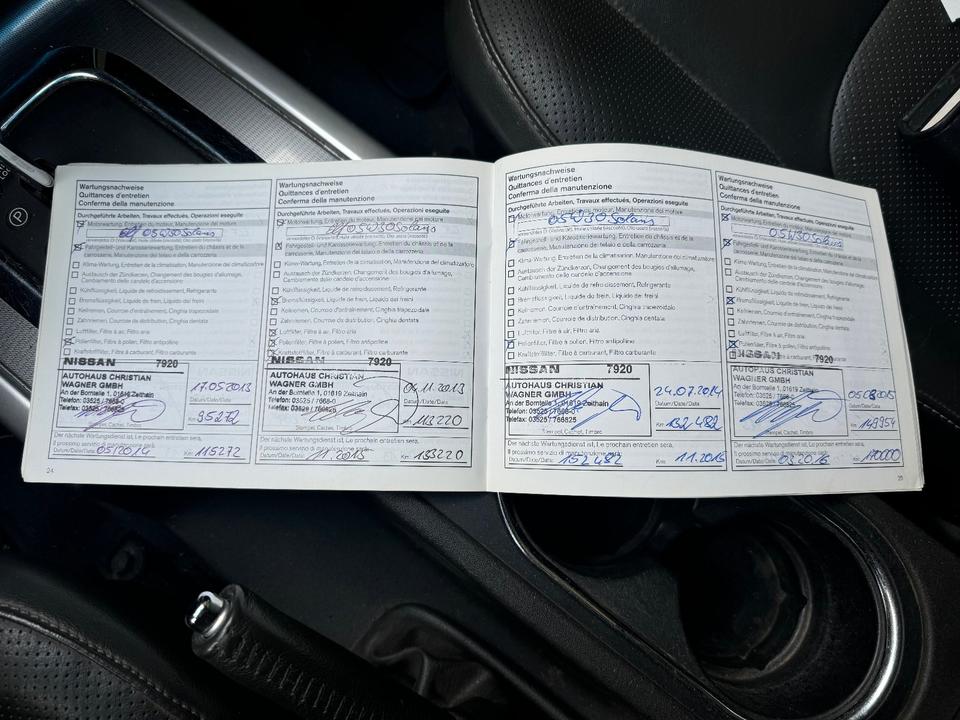 Wartungsnachweise
Quittances d'entretien
Conferma della manutenzione
Durchgeführte Arbeiten, Travaux effectués, Operazioni eseguite
Motorwartung, Entretien du moteur, Manutenzione del motore
05W30 Solaris
Fahrgestell- und Karosseriewartung, Entretien du châssis et de la
carrosserie, Manutenzione del telaio e della carrozzeria
Klima-Wartung, Entretien de la climatisation, Manutenzione del climatizzatore
Austausch der Zündkerzen, Changement des bougies d'allumage,
Cambiamento delle candele d'accensione
Kühlflüssigkeit, Liquide de refroidissement, Refrigerante
Bremsflüssigkeit, Liquide de frein, Liquido dei freini
Keilriemen, Courroie d'entraînement, Cinghia trapezoidale
Zahnriemen, Courroie de distribution, Cinghia dentata
Luftfilter, Filtre à air, Filtro aria
Pollenfilter, Filtre à pollen, Filtro antipolline
Kraftstoffilter, Filtre à carburant, Filtro carburante
NISSAN 7920
AUTOHAUS CHRISTIAN
WAGNER GMBH
An der Borntelle 1, 01619 Zeithain
Telefon: 03525 / 7668-0
Telefax: 03525 / 766825
17.05.2013
Datum/Date/Data
Km: 95272
Stempel, Cachet, Timbro
Der nächste Wartungsdienst ist, Le prochain entretien sera,
Il prossimo servizio di manutenzione sarà:
Datum/Date/Data: 05/2014 Km: 115272
24
Wartungsnachweise
Quittances d'entretien
Conferma della manutenzione
Durchgeführte Arbeiten, Travaux effectués, Operazioni eseguite
Motorwartung, Entretien du moteur, Manutenzione del motore
05W30 Solaris
Fahrgestell- und Karosseriewartung, Entretien du châssis et de la
carrosserie, Manutenzione del telaio e della carrozzeria
Klima-Wartung, Entretien de la climatisation, Manutenzione del climatizzatore
Austausch der Zündkerzen, Changement des bougies d'allumage,
Cambiamento delle candele d'accensione
Kühlflüssigkeit, Liquide de refroidissement, Refrigerante
Bremsflüssigkeit, Liquide de frein, Liquido dei freini
Keilriemen, Courroie d'entraînement, Cinghia trapezoidale
Zahnriemen, Courroie de distribution, Cinghia dentata
Luftfilter, Filtre à air, Filtro aria
Pollenfilter, Filtre à pollen, Filtro antipolline
Kraftstoffilter, Filtre à carburant, Filtro carburante
NISSAN 7920
AUTOHAUS CHRISTIAN
WAGNER GMBH
An der Borntelle 1, 01619 Zeithain
Telefon: 03525 / 7668-0
Telefax: 03525 / 766825
04.11.2013
Datum/Date/Data
Km: 113220
Stempel, Cachet, Timbro
Der nächste Wartungsdienst ist, Le prochain entretien sera,
Il prossimo servizio di manutenzione sarà:
Datum/Date/Data: Km: 133220
Wartungsnachweise
Quittances d'entretien
Conferma della manutenzione
Durchgeführte Arbeiten, Travaux effectués, Operazioni eseguite
Motorwartung, Entretien du moteur, Manutenzione del motore
05W30 Solaris
Fahrgestell- und Karosseriewartung, Entretien du châssis et de la
carrosserie, Manutenzione del telaio e della carrozzeria
Klima-Wartung, Entretien de la climatisation, Manutenzione del climatizzatore
Austausch der Zündkerzen, Changement des bougies d'allumage,
Cambiamento delle candele d'accensione
Kühlflüssigkeit, Liquide de refroidissement, Refrigerante
Bremsflüssigkeit, Liquide de frein, Liquido dei freini
Keilriemen, Courroie d'entraînement, Cinghia trapezoidale
Zahnriemen, Courroie de distribution, Cinghia dentata
Luftfilter, Filtre à air, Filtro aria
Pollenfilter, Filtre à pollen, Filtro antipolline
Kraftstoffilter, Filtre à carburant, Filtro carburante
NISSAN 7920
AUTOHAUS CHRISTIAN
WAGNER GMBH
An der Borntelle 1, 01619 Zeithain
Telefon: 03525 / 7668-0
Telefax: 03525 / 766825
24.07.2014
Datum/Date/Data
Km: 132482
Stempel, Cachet, Timbro
Der nächste Wartungsdienst ist, Le prochain entretien sera,
Il prossimo servizio di manutenzione sarà:
Datum/Date/Data: 152482 Km: 11.2015
Wartungsnachweise
Quittances d'entretien
Conferma della manutenzione
Durchgeführte Arbeiten, Travaux effectués, Operazioni eseguite
Motorwartung, Entretien du moteur, Manutenzione del motore
05W30 Solaris
Fahrgestell- und Karosseriewartung, Entretien du châssis et de la
carrosserie, Manutenzione del telaio e della carrozzeria
Klima-Wartung, Entretien de la climatisation, Manutenzione del climatizzatore
Austausch der Zündkerzen, Changement des bougies d'allumage,
Cambiamento delle candele d'accensione
Kühlflüssigkeit, Liquide de refroidissement, Refrigerante
Bremsflüssigkeit, Liquide de frein, Liquido dei freini
Keilriemen, Courroie d'entraînement, Cinghia trapezoidale
Zahnriemen, Courroie de distribution, Cinghia dentata
Luftfilter, Filtre à air, Filtro aria
Pollenfilter, Filtre à pollen, Filtro antipolline
NISSAN 7920
AUTOHAUS CHRISTIAN
WAGNER GMBH
An der Borntelle 1, 01619 Zeithain
Telefon: 03525 / 7668-0
Telefax: 03525 / 766825
Datum/Date/Data
Km: 149954
Stempel, Cachet, Timbro
Der nächste Wartungsdienst ist, Le prochain entretien sera,
Il prossimo servizio di manutenzione sarà:
Datum/Date/Data: 03.2016 Km: 170000
25
P